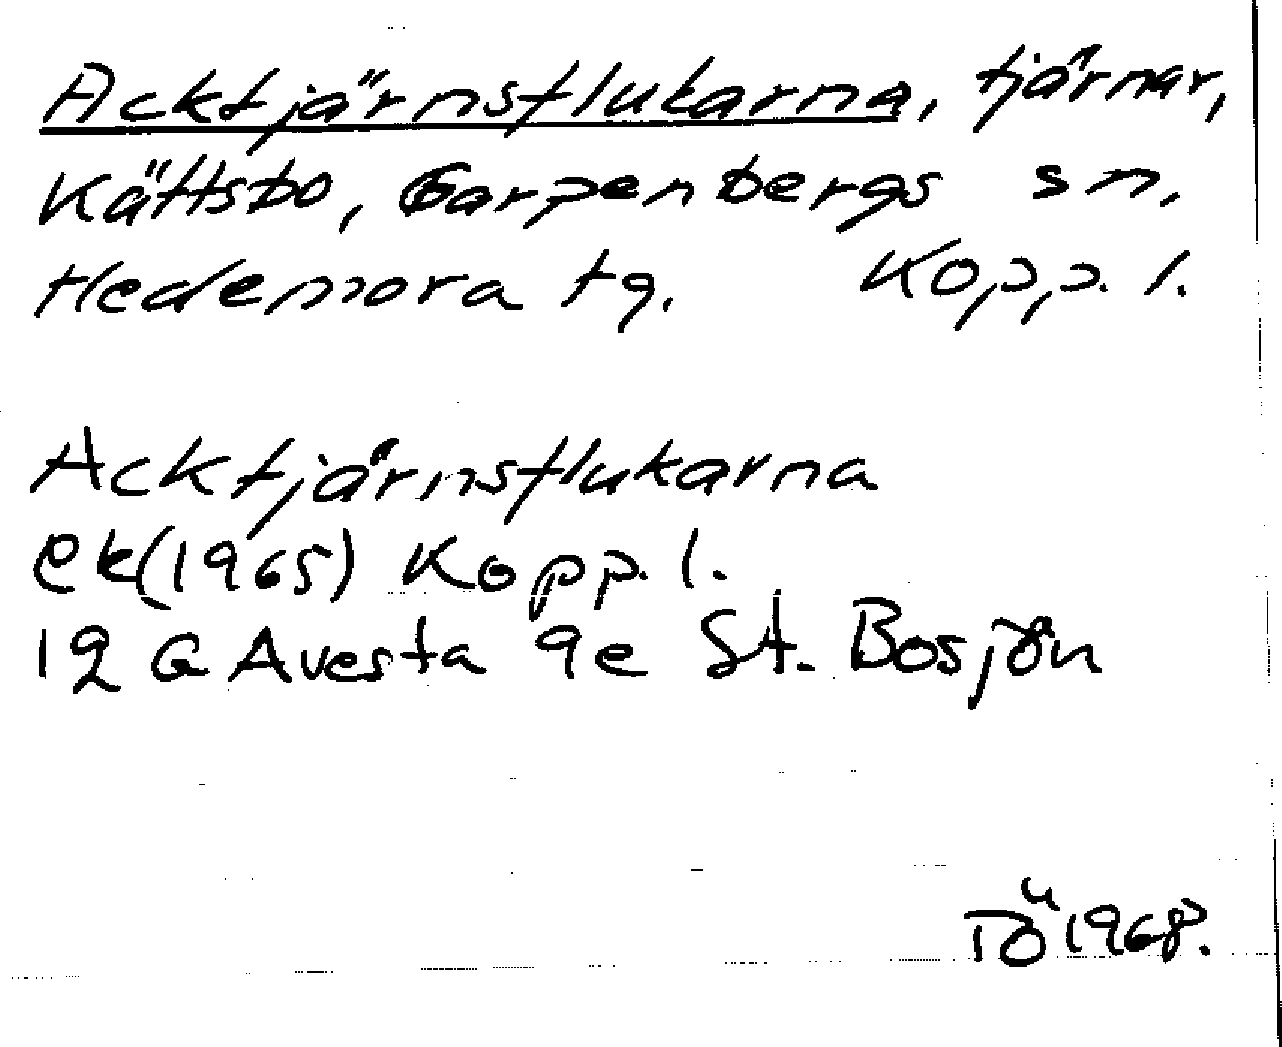 Acktjärnsflukarna, tjärnar,
Kättsbo, Garpenbergs sn.
Hedemora tg. Kopp. l.
Acktjärnsflukarna
ek(1965) Kopp. l.
12 G Avesta 9e St. Bosjön
TÖ 1968.